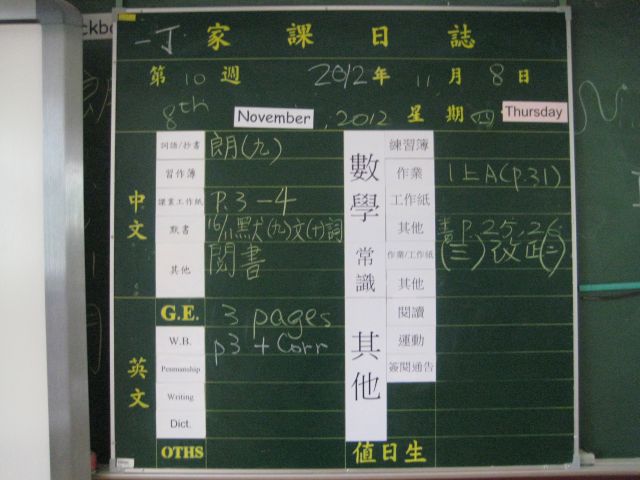 一丁 家課日誌
第 10 週 2012 年 11 月 8 日
8th November, 2012 星期四 Thursday
中文
詞語/抄書 朗(九)
習作簿
課業工作紙 P.3-4
默書 16/11默(九)文(十)詞
其他 閱書
英文
G.E. 3 pages
W.B. p3 + Corr
Penmanship
Writing
Dict.
OTHS
數學
練習簿
作業 1上A(p.31)
工作紙
其他
常識
作業/工作紙 (三)改正(二)
其他
其他
閱讀
運動
簽閱通告
值日生